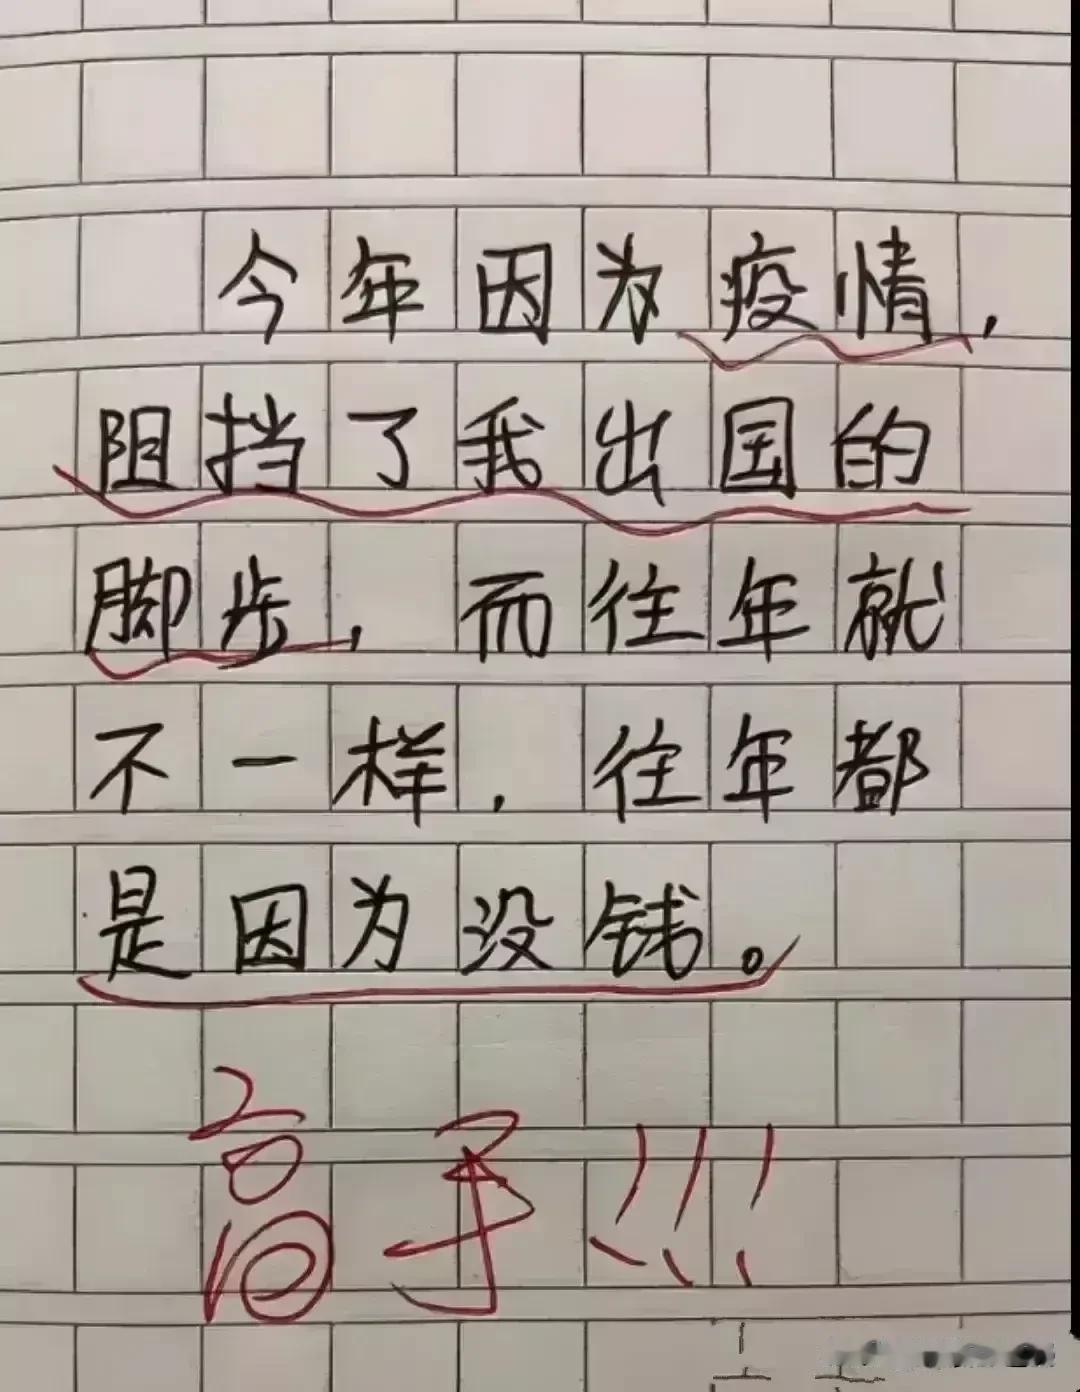 今年因为疫情，
阻挡了我出国的
脚步，而往年就
不一样，往年都
是因为没钱。
高手!!!